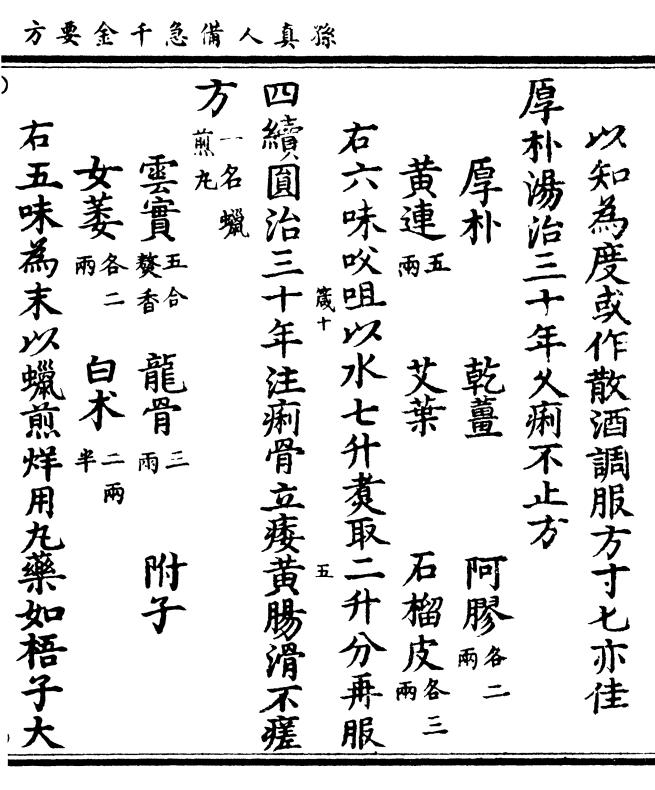 孫真人備急千金要方
以知為度或作散酒調服方寸匕亦佳
厚朴湯治三十年久痢不止方
厚朴 乾薑 阿膠各二兩
黃連五兩 艾葉 石榴皮各三兩
右六味㕮咀以水七升煑取二升分再服
箴十 五
四續圓治三十年注痢骨立痿黃腸滑不瘥
方一名蠟煎丸
雲實五合熬香 龍骨三兩 附子
女萎各二兩 白朮二兩半
右五味為末以蠟煎烊用丸藥如梧子大